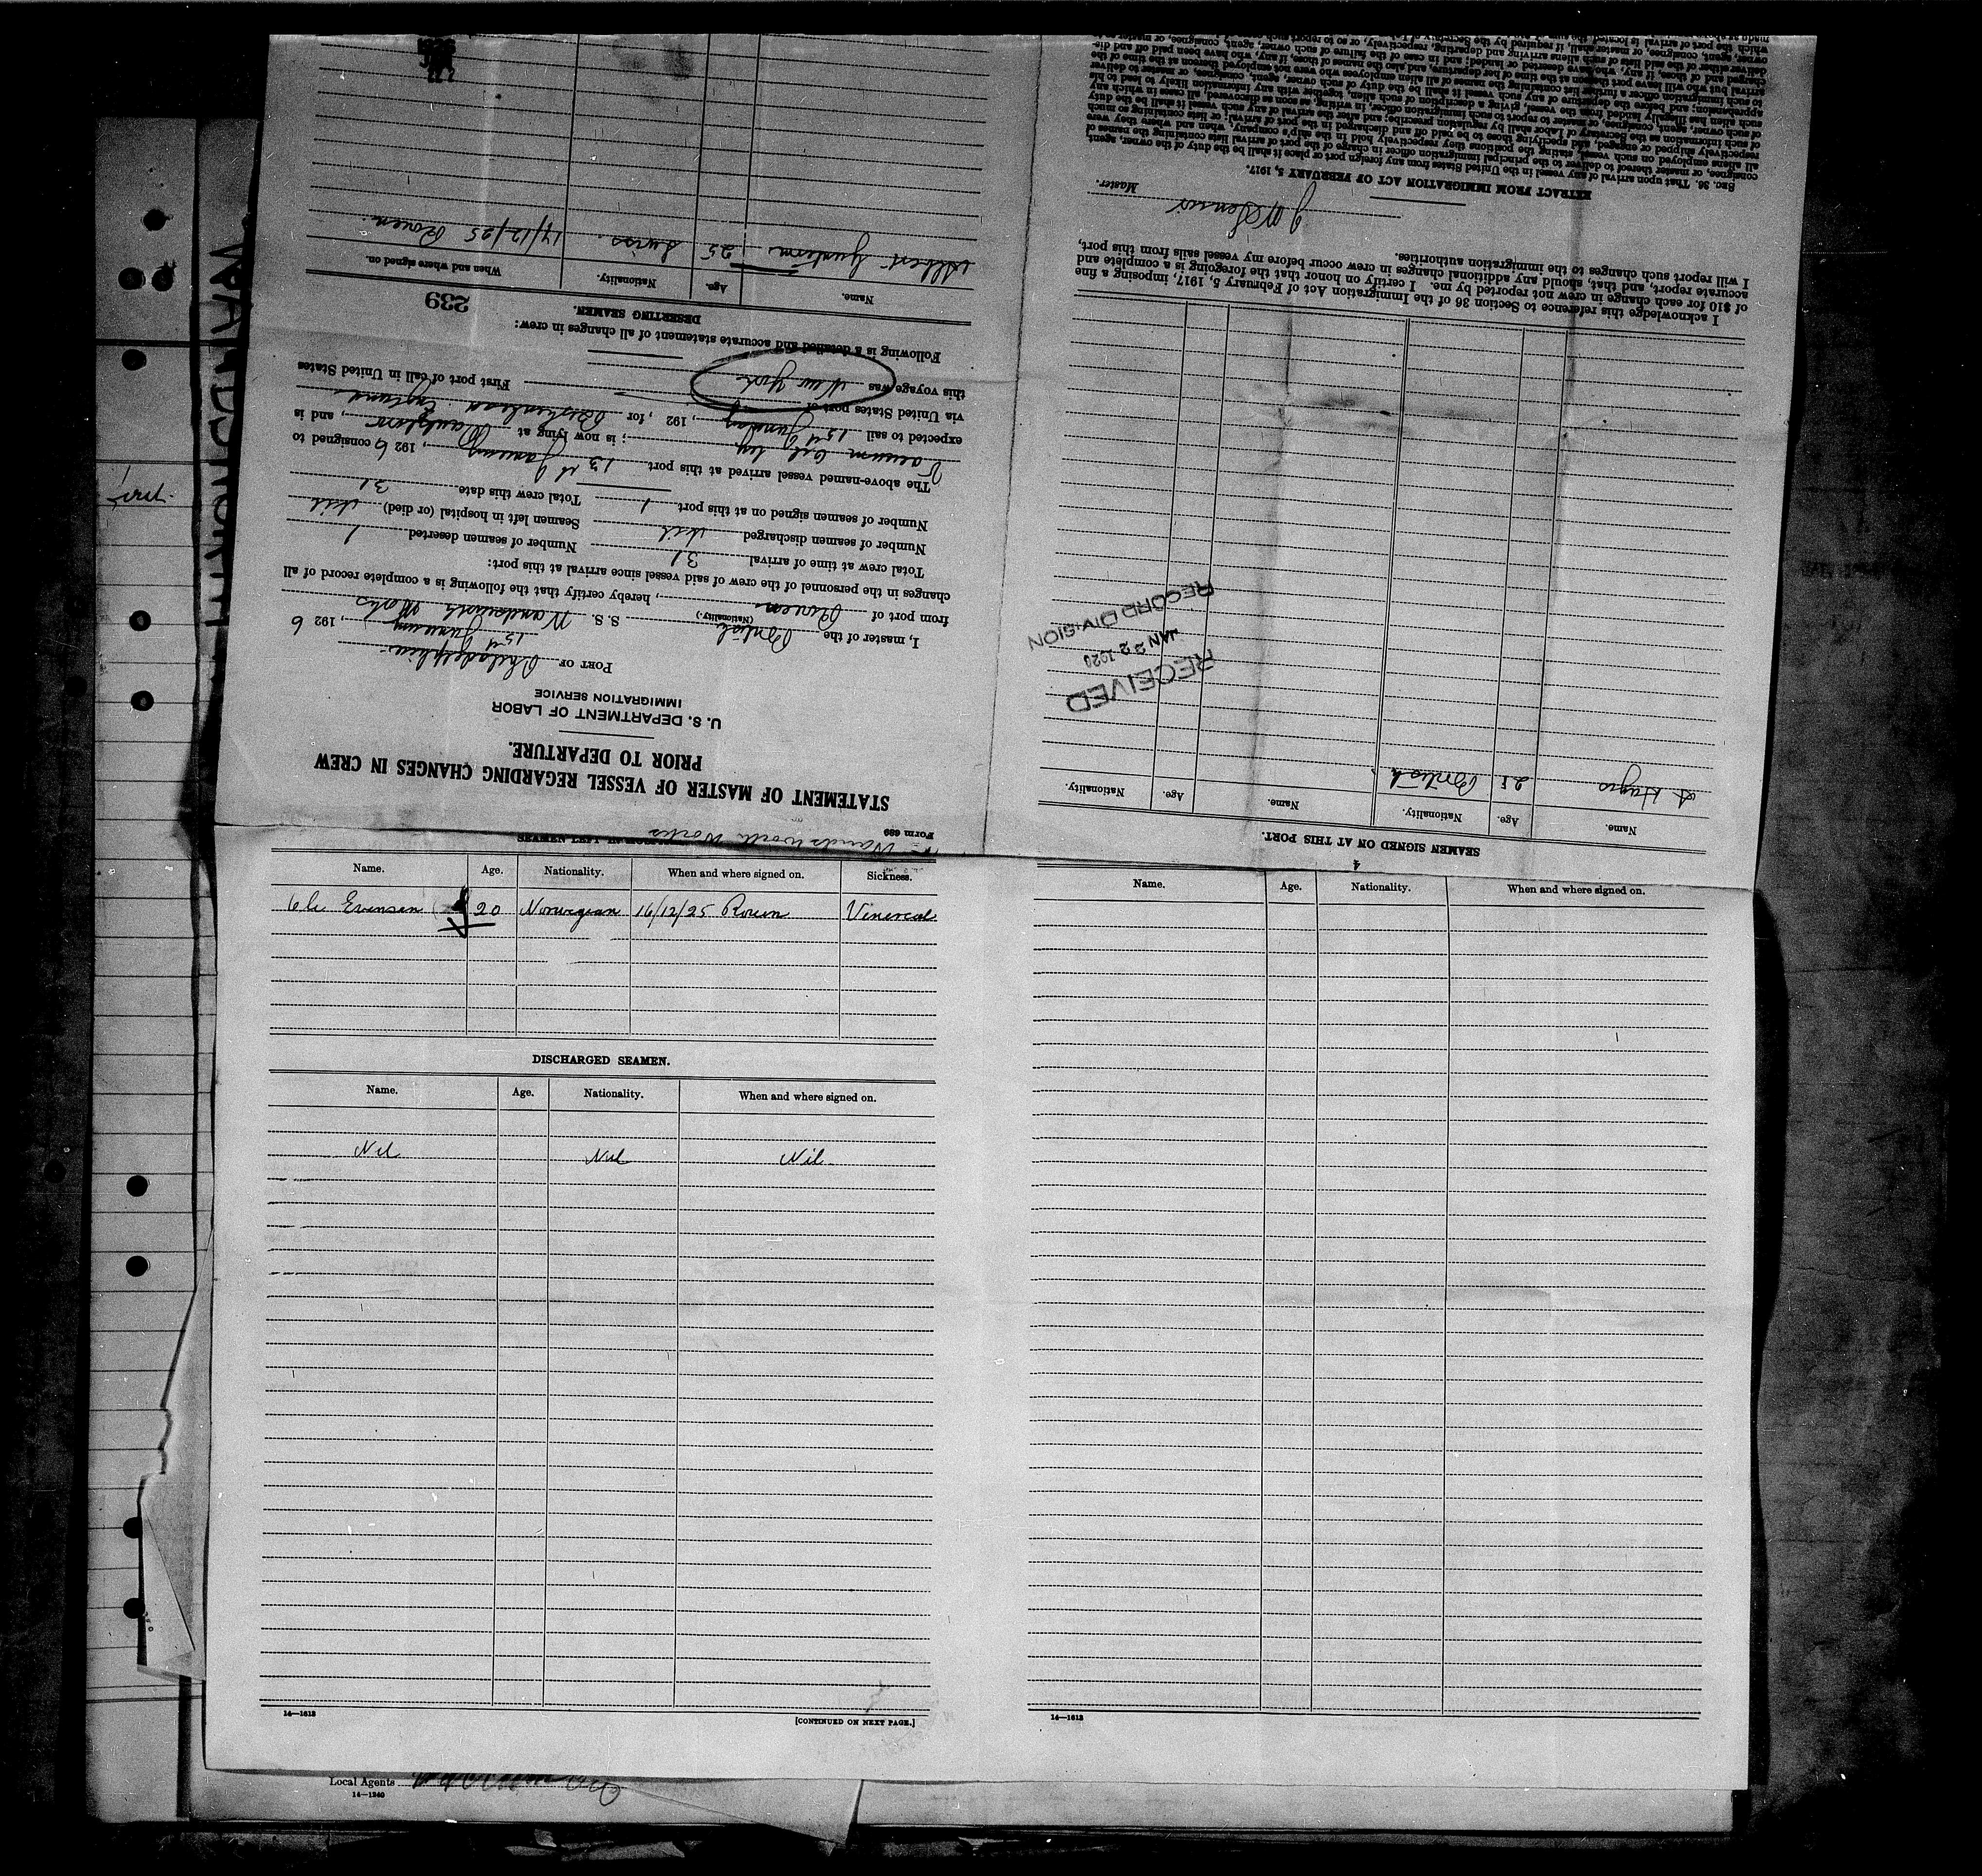 Form 689
STATEMENT OF MASTER OF VESSEL REGARDING CHANGES IN CREW
PRIOR TO DEPARTURE.
U. S. DEPARTMENT OF LABOR
IMMIGRATION SERVICE
PORT OF Philadelphia
15th January, 1926
I, master of the British (Nationality.) S. S. Wandsworth Works
from port of Rouen, hereby certify that the following is a complete record of all
changes in the personnel of the crew of said vessel since arrival at this port:
Total crew at time of arrival 31 Number of seamen deserted 1
Number of seamen discharged Nil Seamen left in hospital (or died) Nil
Number of seamen signed on at this port 1 Total crew this date 31
The above-named vessel arrived at this port 13th January, 1926 consigned to
Vacuum Oil Coy; is now lying at, and is
expected to sail 15th January, 192, for Birkenhead England
via United States port of First port of call in United States
this voyage was New York
Following is a detailed and accurate statement of all changes in crew:
239
DESERTING SEAMEN.
Name. Age. Nationality. When and where signed on.
Albert 25 Swiss. 14/12/25 Rouen.
Wandsworth Works
Name. Age. Nationality. When and where signed on. Sickness.
Ole Evensen 20 Norwegian 16/12/25 Rouen Venereal
DISCHARGED SEAMEN.
Name. Age. Nationality. When and where signed on.
Nil Nil Nil
14—1613
[CONTINUED ON NEXT PAGE.]
4
Name. Age. Nationality. When and where signed on.
14—1613
SEAMEN SIGNED ON AT THIS PORT.
Name. Age. Nationality. Name. Age. Nationality.
A Hayes 28 British
RECEIVED
JAN 22 1926
RECORD DIVISION
I acknowledge this reference to Section 36 of the Immigration Act of February 5, 1917, imposing a fine
of $10 for each change in crew not reported by me. I certify on honor that the foregoing is a complete and
accurate report, and that, should any additional changes in crew occur before my vessel sails from this port,
I will report such changes to the immigration authorities.
Master.
EXTRACT FROM IMMIGRATION ACT OF FEBRUARY 5, 1917.
SEC. 36. That upon arrival of any vessel in the United States from any foreign port or place it shall be the duty of the owner, agent,
consignee, or master thereof to deliver to the principal immigration officer in charge of the port of arrival lists containing the names of
all aliens employed on such vessel, stating the positions they respectively hold in the ship's company, when and where they were
respectively shipped or engaged, and specifying those to be paid off and discharged in the port of arrival; or lists containing so much
of such information as the Secretary of Labor shall by regulation prescribe; and after the arrival of any such vessel it shall be the duty
of such owner, agent, consignee, or master to report to such immigration officer, in writing, as soon as discovered, all cases in which any
such alien has illegally landed from the vessel, giving a description of such alien, together with any information likely to lead to his
apprehension; and before the departure of any such vessel it shall be the duty of such owner, agent, consignee, or master to deliver
to such immigration officer a further list containing the names of all alien employees who were not employed thereon at the time of the
arrival but who will leave port thereon at the time of her departure, and also the names of those, if any, who have been paid off and dis-
charged and of those, if any, who have deserted or landed; and in case of the failure of such owner, agent, consignee, or master
WANDSWORTH
Local Agents
14—1240